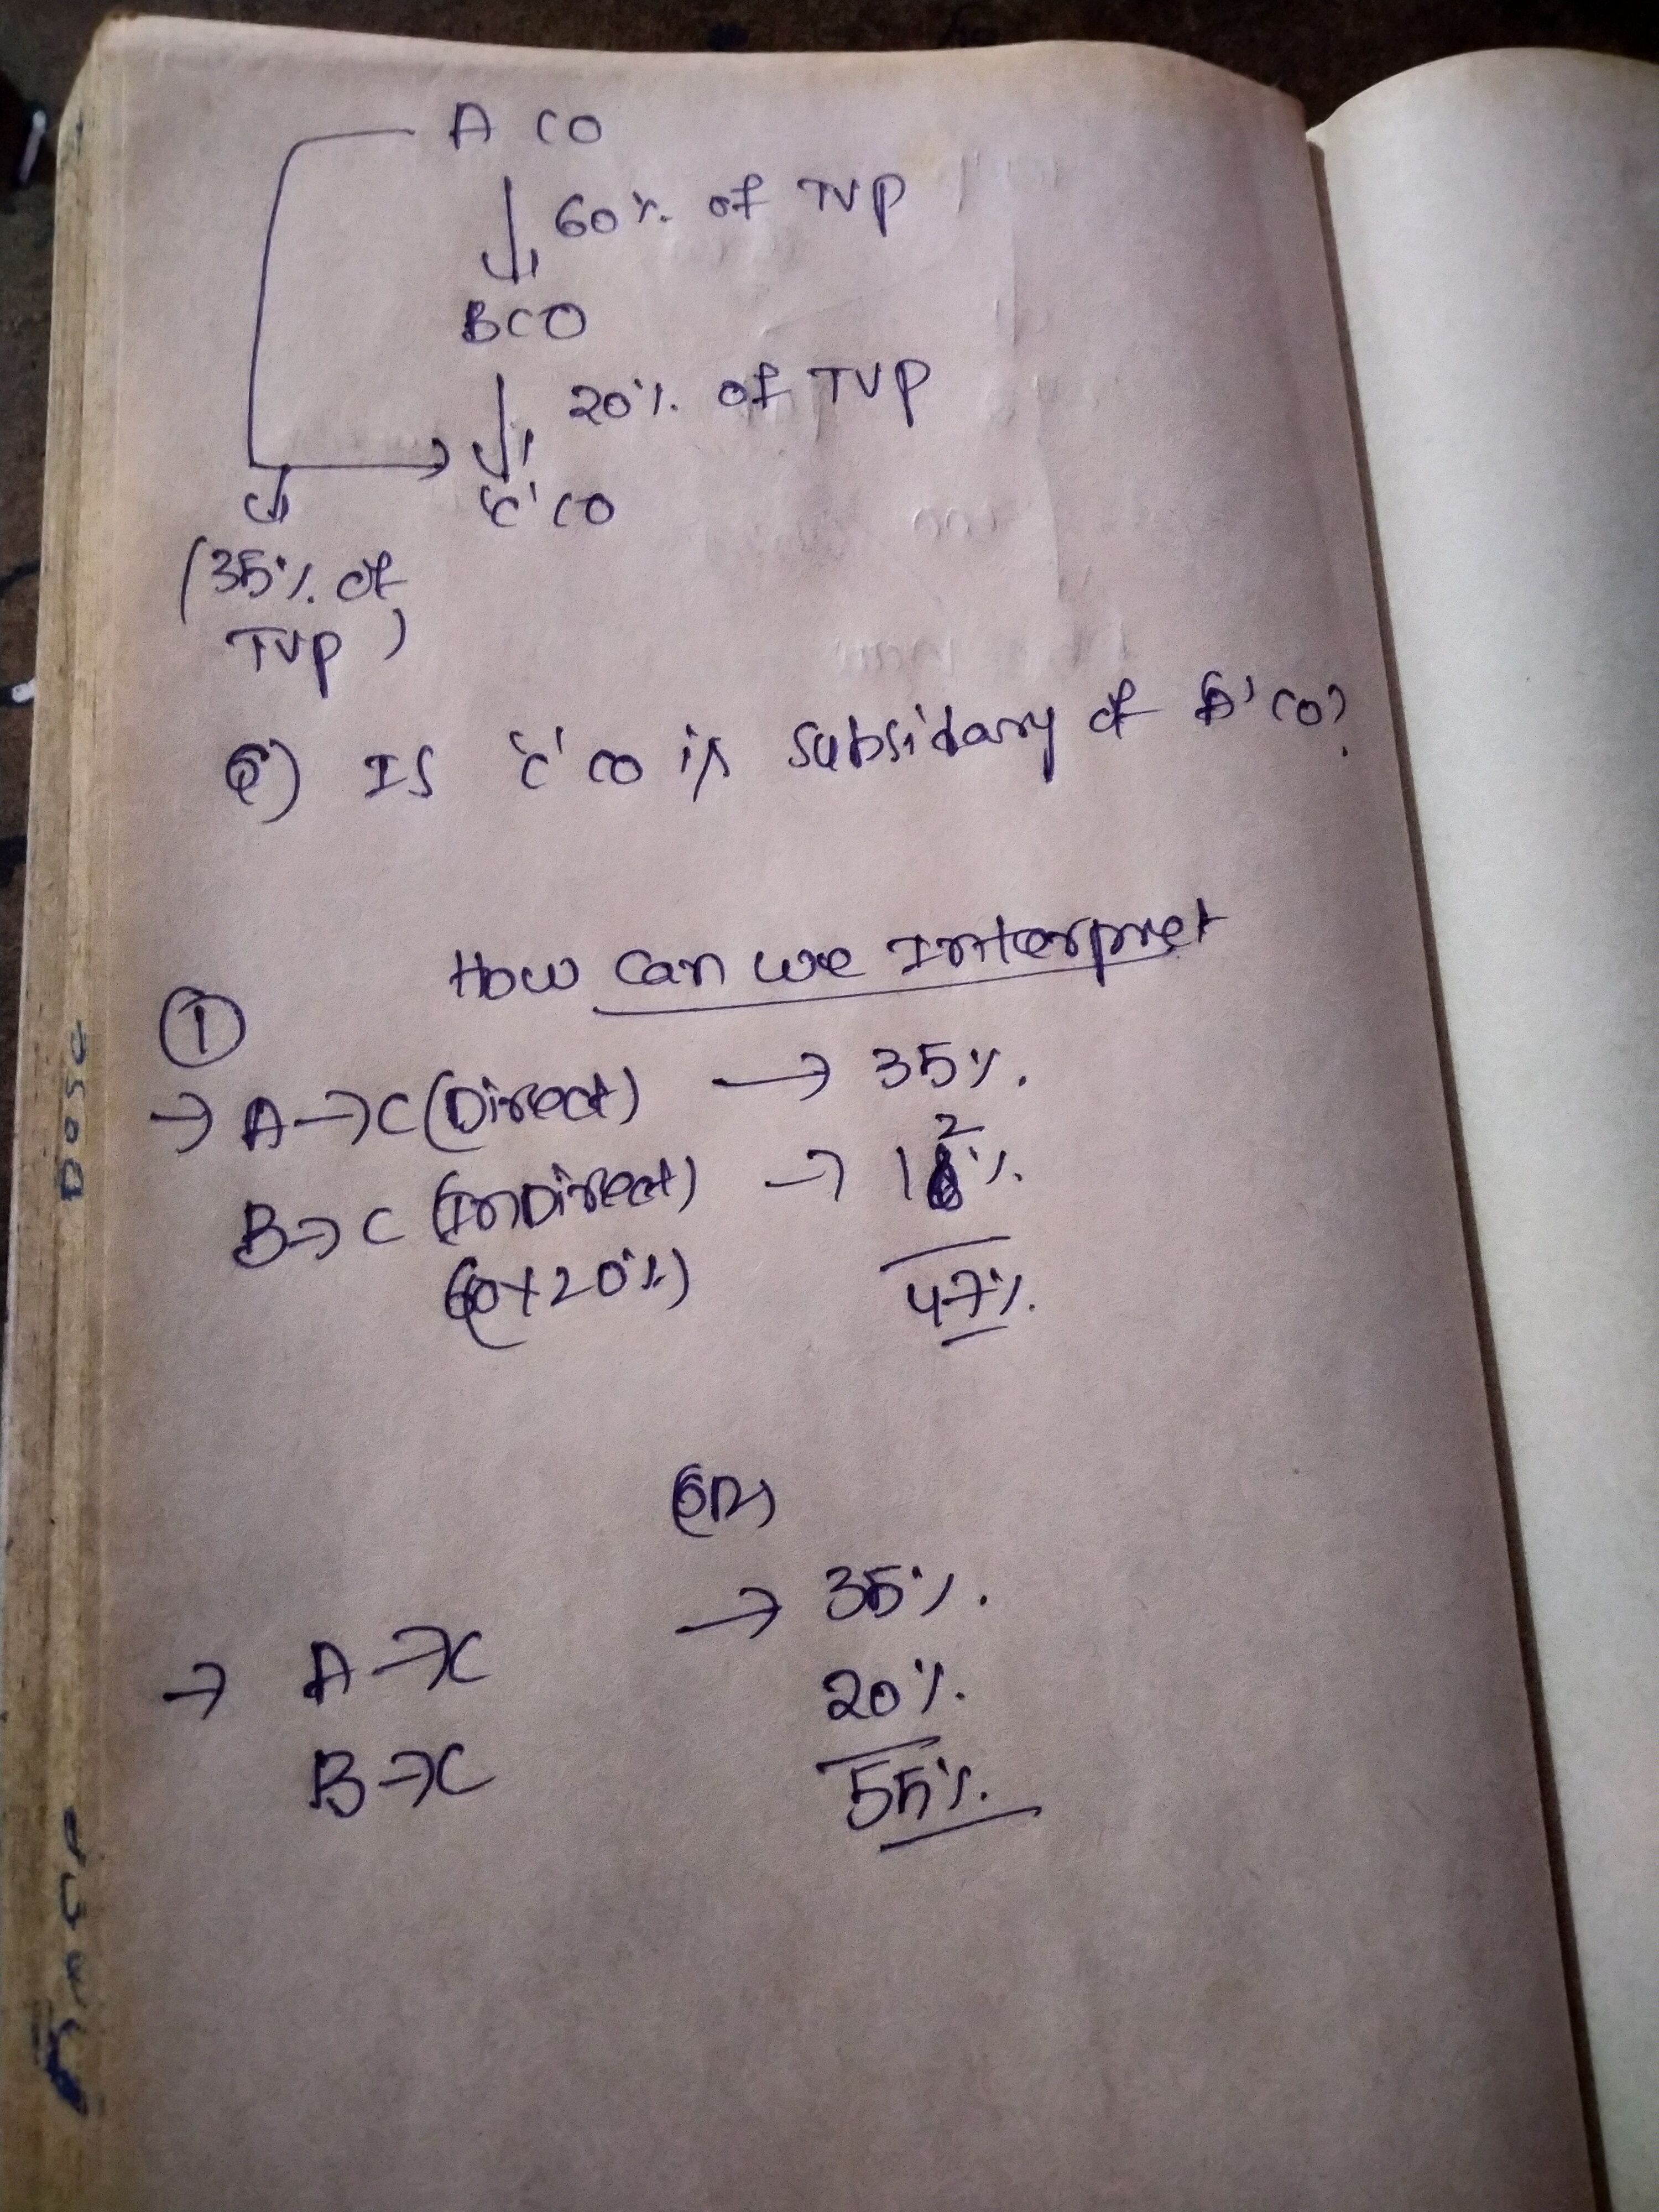 A CO
60%. of TVP
BCO
20%. of TVP
'C' CO
(35%. of
TVP)
Q) Is 'C' co is subsidary of A' co?
How can we Interpret
①
→ A→C (Direct) → 35%.
B→C (InDirect) → 12%.
(60×20%)
47%.
(OR)
→ A→C → 35%.
B→C 20%.
55%.